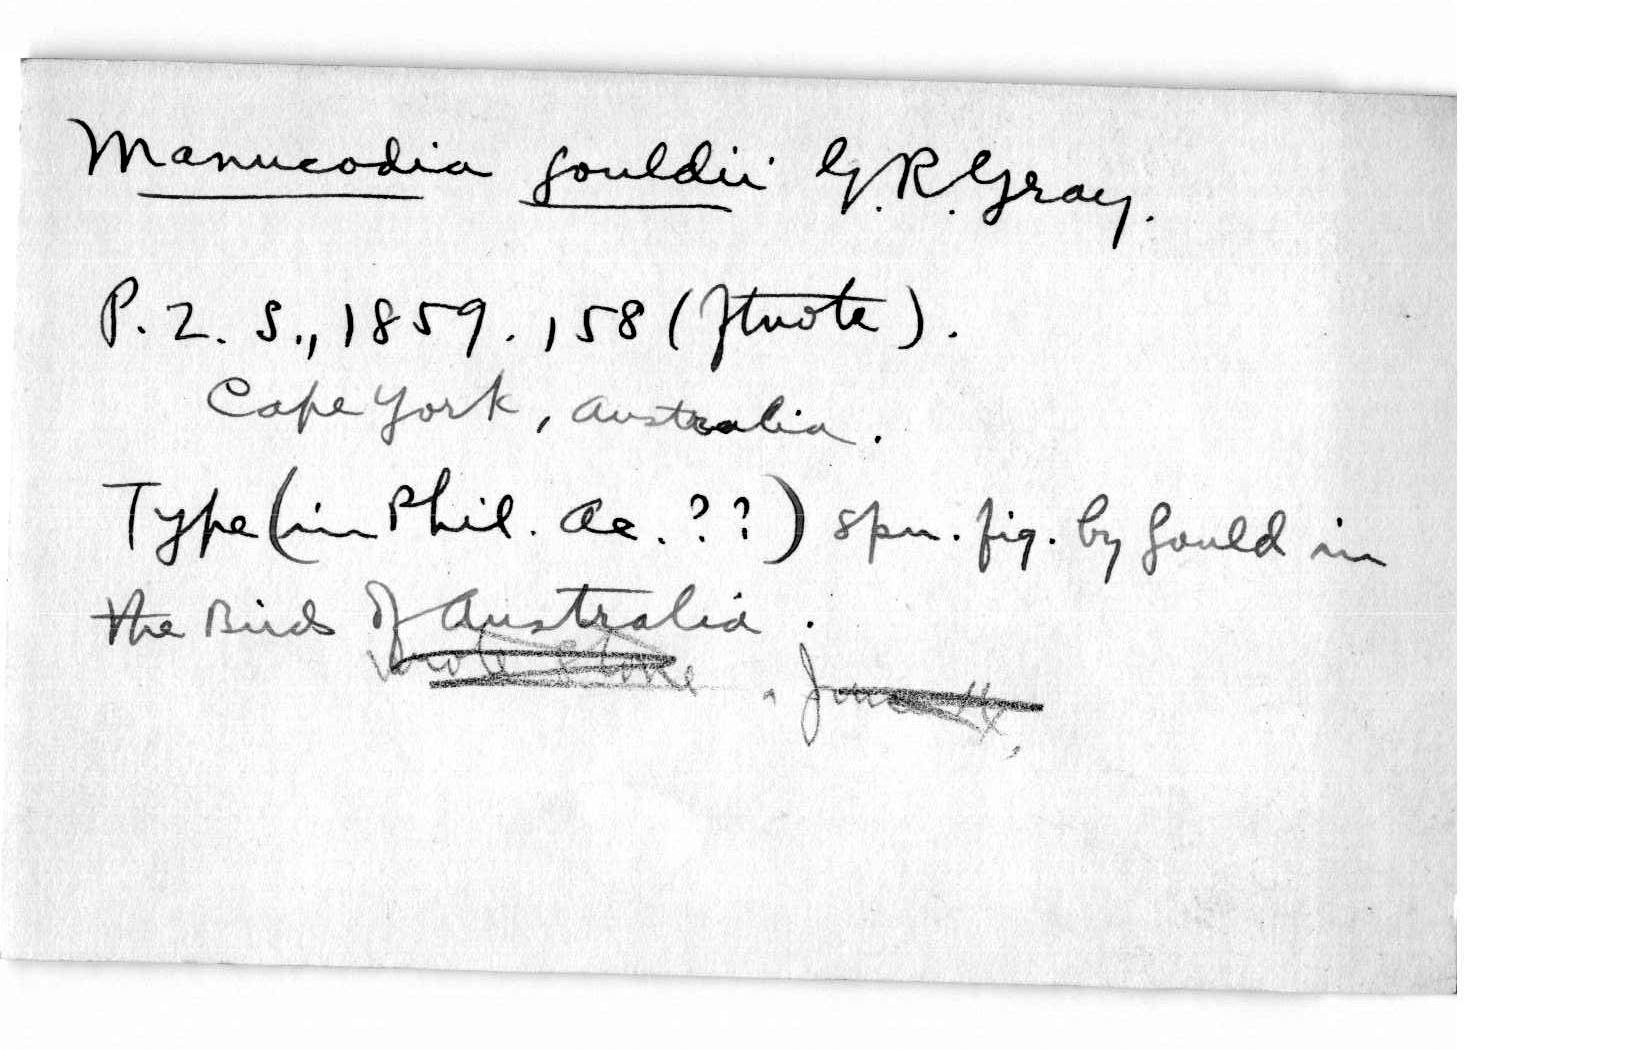 Manucodia gouldii G.R. Gray.
P. Z. S., 1859. 158 (ftnote).
Cape York, Australia.
Type (in Phil. Ac. ??) spn. fig. by Gould in
the Birds of Australia.
Wrote Stone